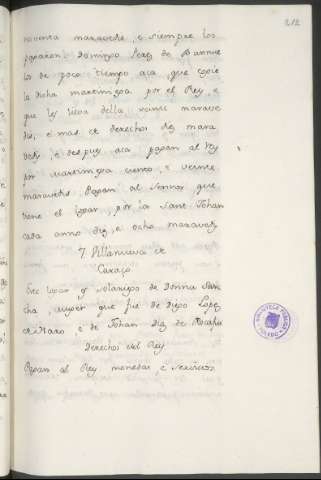 212
noventa maravedis, e siempre los
pagaron Domingo Perez de Barrue
los de poco tiempo aca, que cogie
la dicha martiniega por el Rey, e
que les lieva della veinte marave
dis, e mas de derechos diez mara
vedis, e despues aca pagan al Rey
por martiniega ciento, e veinte
maravedis. Pagan al Sennor que
tiene el logar, por la Sant Johan
cada anno diez, e ocho maravedis.
7. Villanueva de
Carazo
Este logar es solariego de Donna San
cha, muger que fue de Diego Lopez
de Haro, e de Johan Diaz de Rocafu
Derechos del Rey
Pagan al Rey monedas, e servicios
BIBLIOTECA PUBLICA
TOLEDO